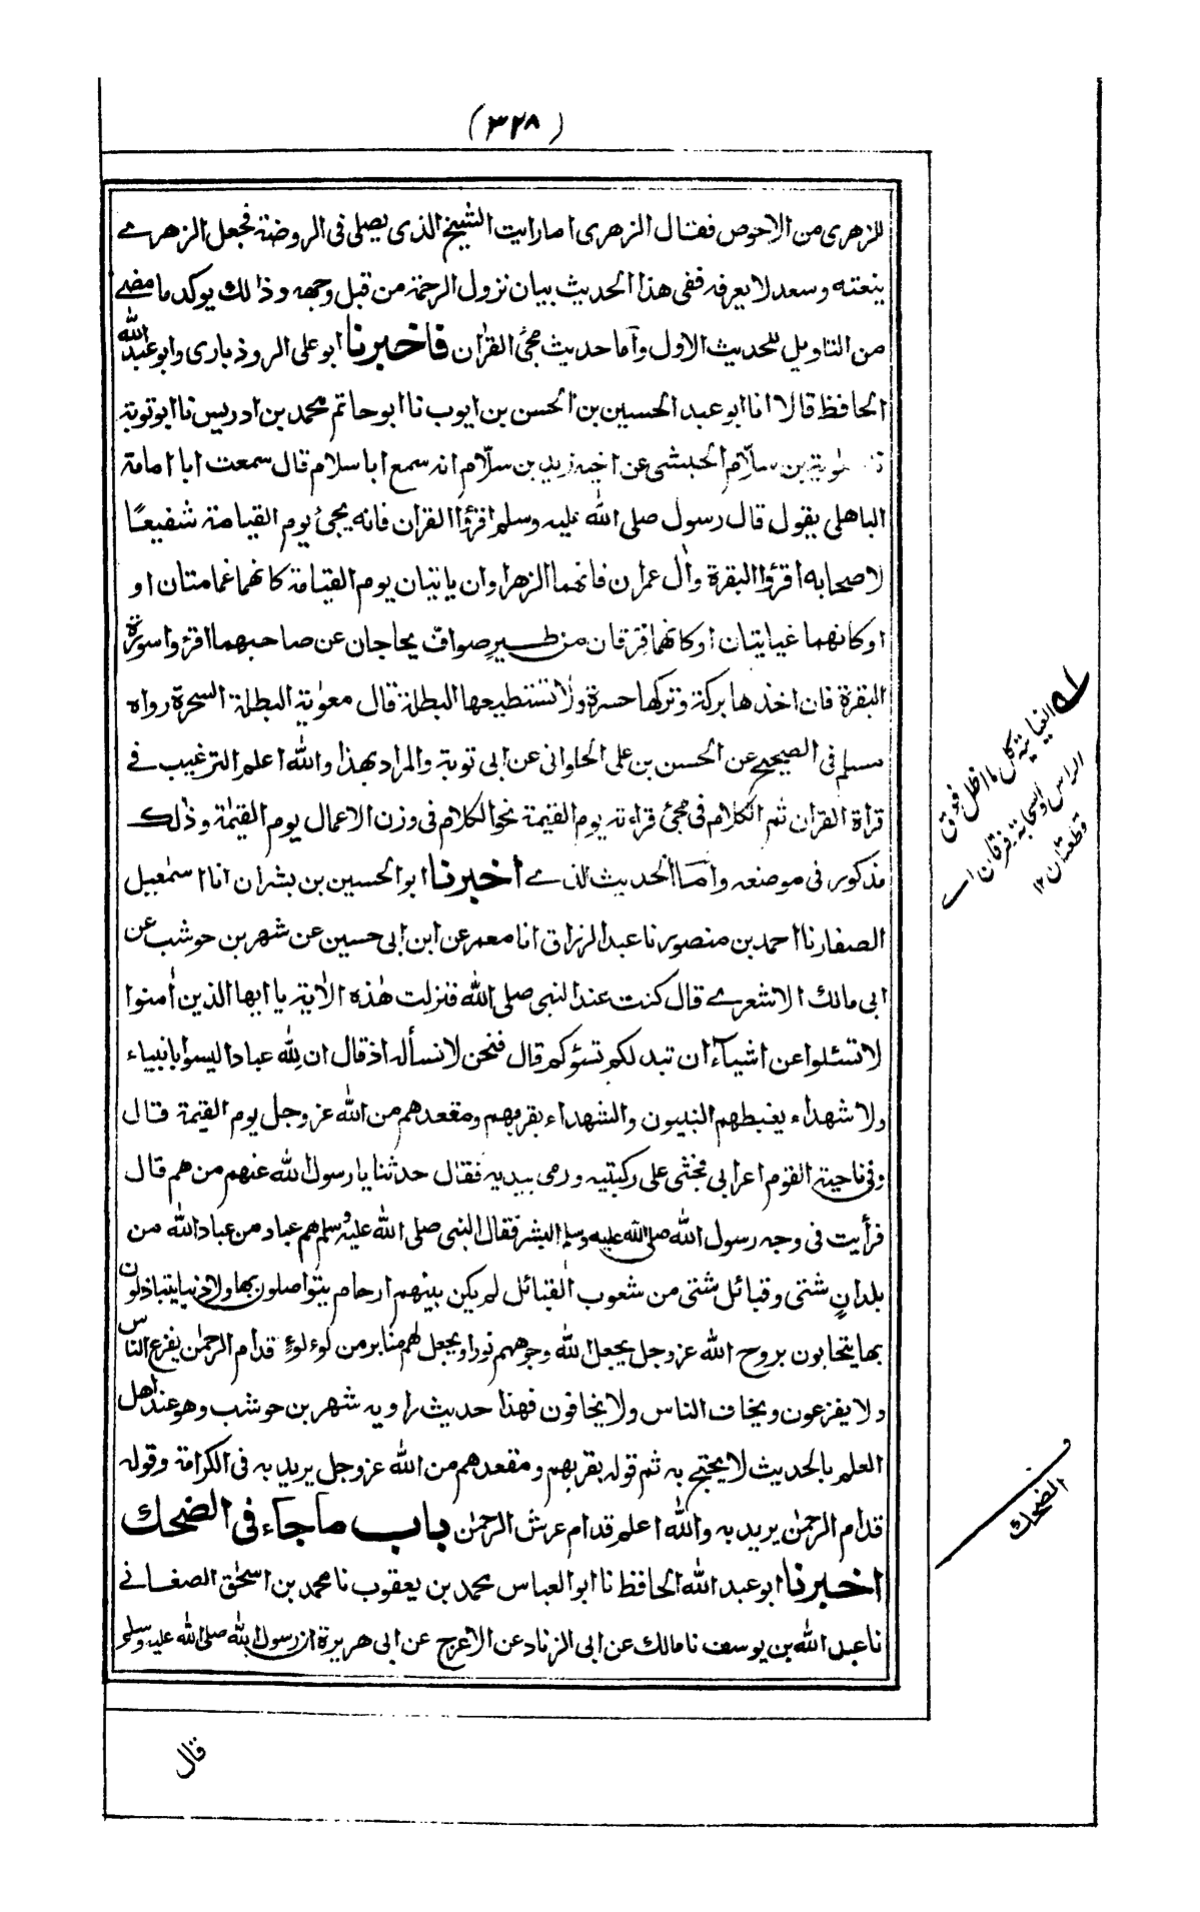 (۳۲۸)
للزهرى من الاحوص فقال الزهرى اما رايت الشيخ الذى يصلى فى الروضة فجعل الزهرے
ينعته وسعد لا يعرفه ففى هذا الحديث بيان نزول الرحمة من قبل وجهه وذالك يوكد ما مضے
من التاويل للحديث الاول وآما حديث مجئ القرٰان فاخبرنا ابو على الروذبارى وابو عبد الله
الحافظ قالا انا ابو عبد الحسين بن الحسن بن ايوب نا ابو حاتم محمد بن ادريس نا ابو توبة
معٰوية بن سلّام الحبشى عن اخيه زيد بن سلّام انه سمع ابا سلام قال سمعت ابا امامة
الباهلى يقول قال رسول صلى الله عليه وسلم اقرؤا القرٰان فانه يجئ يوم القيامة شفيعًا
لاصحابه اقرؤا البقرة واٰل عمران فانهما الزهراوان ياتيان يوم القيامة كانهما غمامتان او
او كانهما غيايتان او كانهما فرقان من طيرٍ صوافّ يحاجان عن صاحبهما اقرؤا سورة
البقرة فان اخذها بركة وتركها حسرة ولا تستطيعها البطلة قال معٰوية البطلة السحرة رواه
مسلم فى الصحيح عن الحسن بن على الحلوانى عن ابى توبة والمراد بهذا والله اعلم الترغيب فے
قراة القران ثم الكلام فى مجئ قراءته يوم القيٰمة نحو الكلام فى وزن الاعمال يوم القيٰمة وذٰلك
مذكور فى موضعه وآما الحديث الذے اخبرنا ابو الحسين بن بشران انا اسمٰعيل
الصفار نا احمد بن منصور نا عبد الرزاق انا معمر عن ابن ابى حسين عن شهر بن حوشب عن
ابى مالك الاشعرے قال كنت عند النبى صلى الله فنزلت هٰذه الاٰية يا ايها الذين اٰمنوا
لا تسئلوا عن اشيآء ان تبد لكم تسؤكم قال فنحن لا نسأله اذ قال ان لله عبادا ليسوا بانبياء
ولا شهداء يغبطهم النبيون والشهداء بقربهم ومقعدهم من الله عز وجل يوم القيٰمة قال
وفى ناحية القوم اعرابى فجثى على ركبتيه ورمى بيديه فقال حدثنا يا رسول الله عنهم من هم قال
فرأيت فى وجه رسول الله صلى الله عليه وسلم البشر فقال النبى صلى الله عليه وسلم هم عباد من عباد الله من
بلدانٍ شتى وقبائل شتى من شعوب القبائل لم يكن بينهم ارحام يتواصلون بها ولا دنيا يتباذلون
بها يتحابون بروح الله عز وجل يجعل الله وجوههم نورا ويجعل لهم منابر من لوءلوءٍ قدام الرحمٰن يفزع الناس
ولا يفزعون ويخاف الناس ولا يخافون فهذا حديث راويه شهر بن حوشب وهو عند اهل
العلم بالحديث لا يحتج به ثم قوله بقربهم ومقعدهم من الله عز وجل يريد به فى الكرامة وقوله
قدام الرحمٰن يريد به والله اعلم قدام عرش الرحمٰن باب ما جاء فى الضحك
اخبرنا ابو عبد الله الحافظ نا ابو العباس محمد بن يعقوب نا محمد بن اسحٰق الصغانے
نا عبد الله بن يوسف نا مالك عن ابى الزناد عن الاعرج عن ابى هريرة ان رسول الله صلى الله عليه وسلم
له الغيايةكل ما اظل فوق
الراس وسحابة فرقان اے
قطعتان ١٢
الضحك
قال